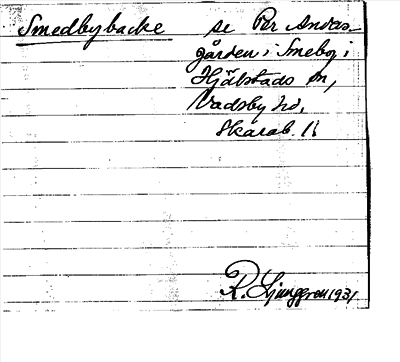 Smedbybacke se Per Anders-
gården i Smeby i
Hjälstads sn,
Vadsbo hd,
Skarab. l.
R. Ljunggren 1931